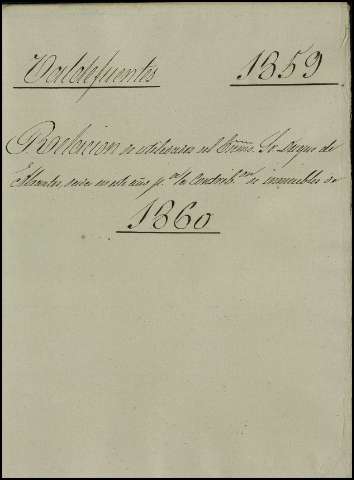 Valdefuentes 1859
Relacion de utilidades del Excmo. Sr. Duque de
Abrantes, en este año pa. la Contribon. de inmuebles de
1860